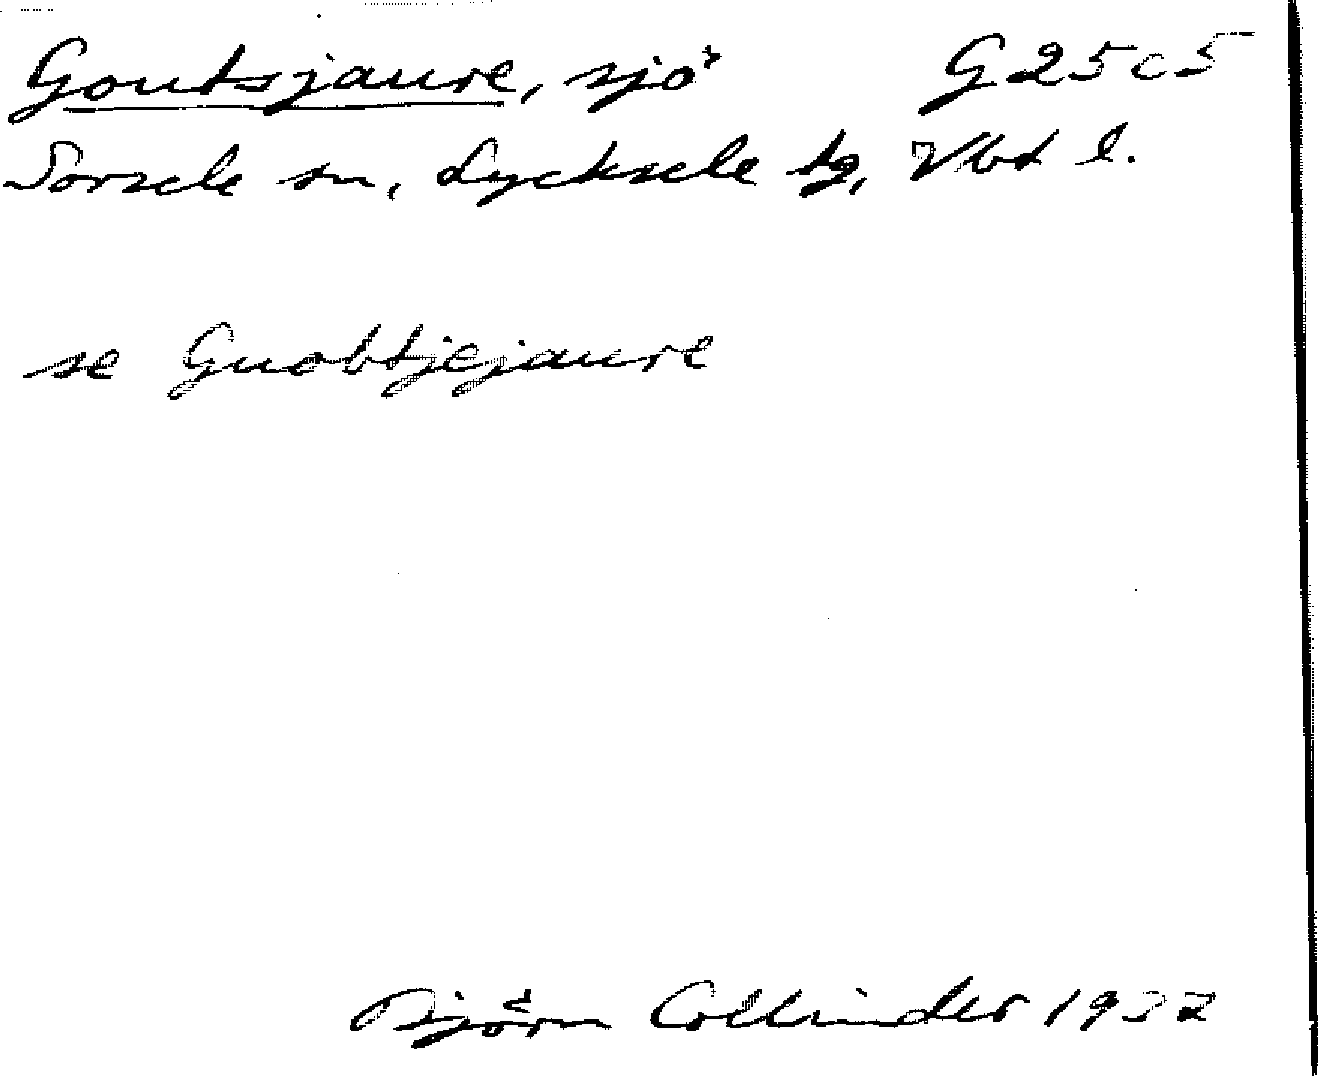 Goutsjaure, sjö G25c5
Sorsele sn, Lycksele tg, Vbt l.
se Guobtjejaure
Björn Collinder 1937